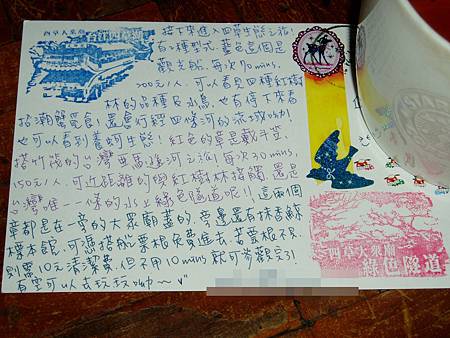 四草大眾廟
紅樹林
接下來進入四草生態之旅!
有2種型式, 藍色這個是
觀光船, 每次70mins,
200元/人, 可以看見四種紅樹
林的品種及水鳥, 也有停下來看
招潮蟹覓食, 還會行經四條河的流域呦!
也可以看到養蚵生態! 紅色的章是戴斗笠、
搭竹筏的台灣亞馬遜河之旅! 每次30mins,
150元/人, 可近距離的與紅樹林接觸, 還是
台灣唯一一條的水上綠色隧道呢!! 這兩個
章都是在一旁的大眾廟蓋的, 旁邊還有抹香鯨
標本館, 可憑搭船票根免費進去, 若票根不見
則需10元清潔費, 但不用10mins就可參觀完!
有空可以去玩玩呦~ v"
四草大眾廟
綠色隧道